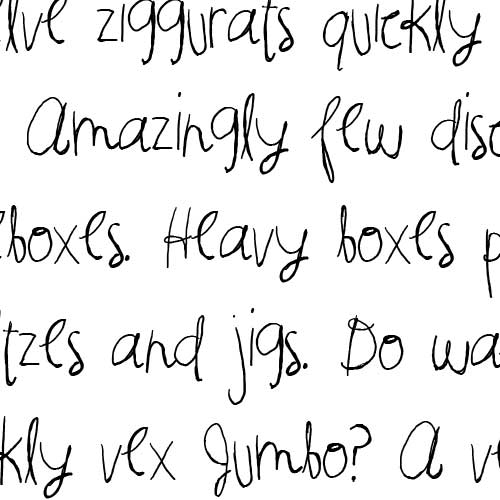 lve ziggurats quickly
Amazingly few disc
eboxes. Heavy boxes p
ltzes and jigs. Do wa
kly vex Jumbo? A ve